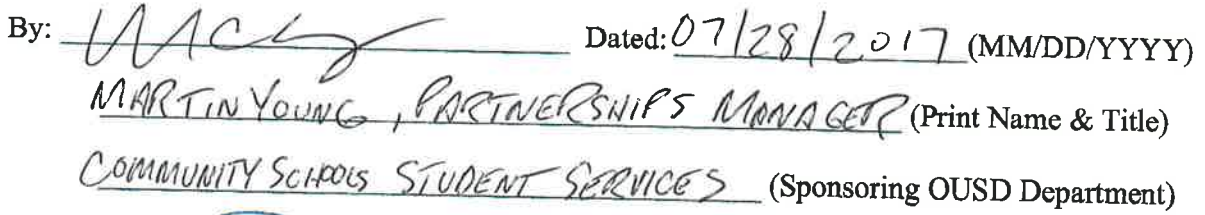 By: Dated: 07/28/2017 (MM/DD/YYYY)
MARTIN YOUNG, PARTNERSHIPS MANAGER (Print Name & Title)
COMMUNITY SCHOOLS STUDENT SERVICES (Sponsoring OUSD Department)